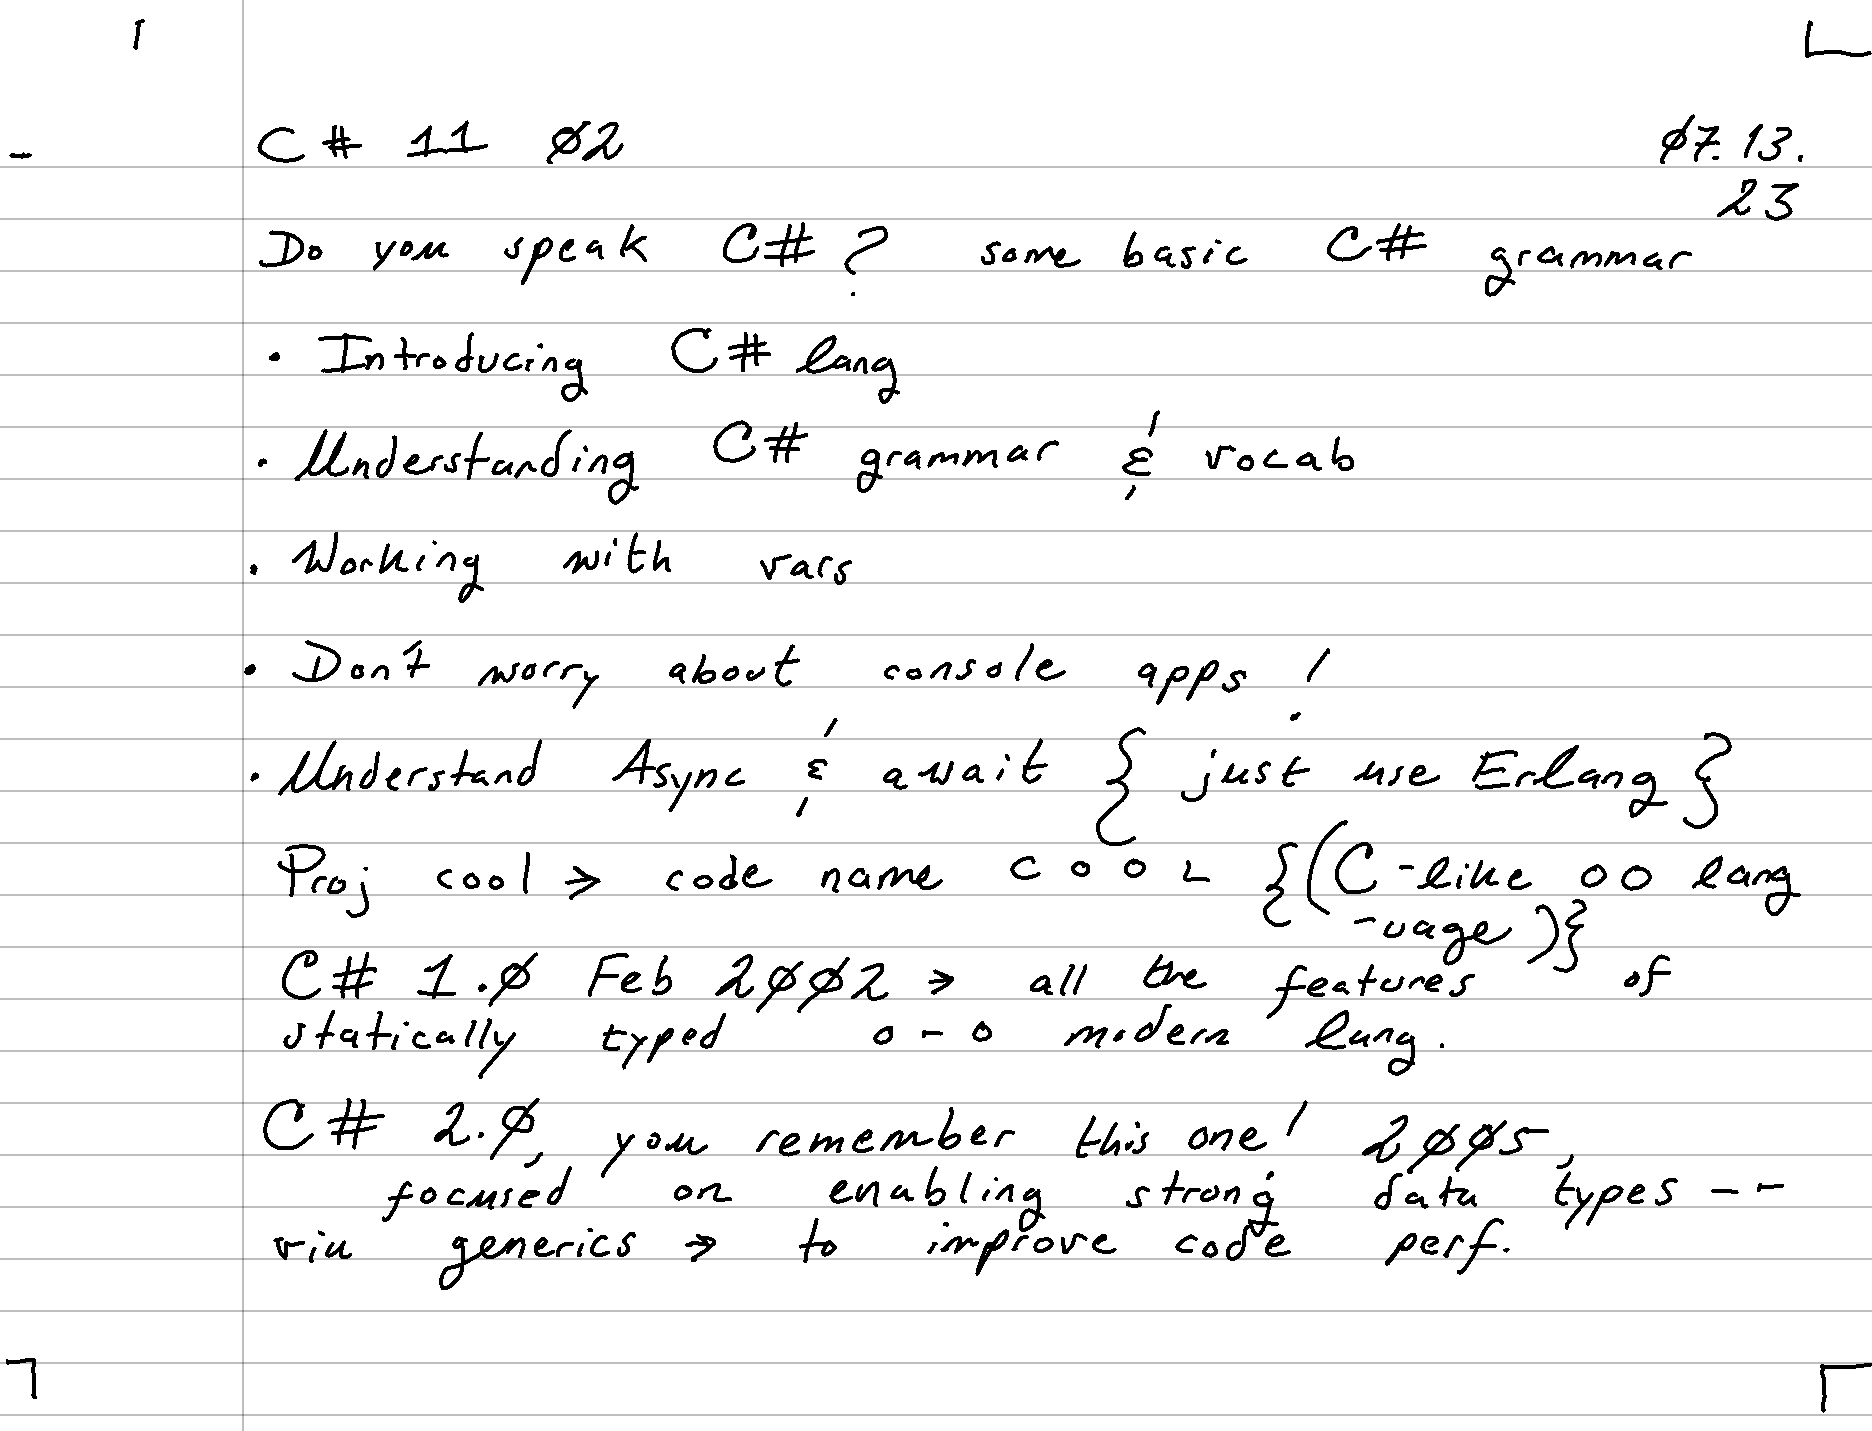 C# 11 02 07.13.
23
Do you speak C#? some basic C# grammar
· Introducing C# lang
· Understanding C# grammar & vocab
· Working with vars
· Don't worry about console apps!
· Understand Async & await { just use Erlang }
Proj cool → code name COOL {(C-like OO lang
-uage)}
C# 1.0 Feb 2002 → all the features of
statically typed o-o modern lang.
C# 2.0, you remember this one! 2005,
focused on enabling strong data types --
via generics → to improve code perf.